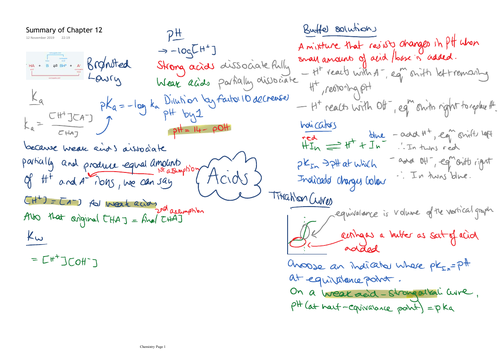 Summary of Chapter 12
Brønsted
Lowry
Ka
Ka = [H+][A-]
[HA]
pKa = -log Ka
because weak acids dissociate
partially and produce equal amounts
of H+ and A- ions, we can say
1st assumption
[H+] = [A-] for weak acids
2nd assumption
Also that original [HA] = final [HA]
Kw
= [H+][OH-]
pH
→ -log[H+]
Strong acids dissociate fully
Weak acids partially dissociate
Dilution by factor 10 decreases
pH by 1
pH = 14 - pOH
Acids
Buffer solutions
A mixture that resists changes in pH when
small amount of acid/base is added.
- H+ reacts with A-, eqm shift left remaining
H+, restoring pH
- H+ reacts with OH-, eqm shift right to replace H+.
Indicators
red
blue
HIn ⇌ H+ + In-
- add H+, eqm shifts left
∴ In turns red
- add OH-, eqm shifts right
∴ In turns blue.
pKin → pH at which
Indicator changes colour
Titration Curves
equivalence is volume of the vertical graph
acting as a buffer as salt of acid
added
Choose an indicator where pKin = pH
at equivalence point.
On a weak acid - strong alkali curve,
pH (at half-equivalence point) = pKa
Chemistry Page 1